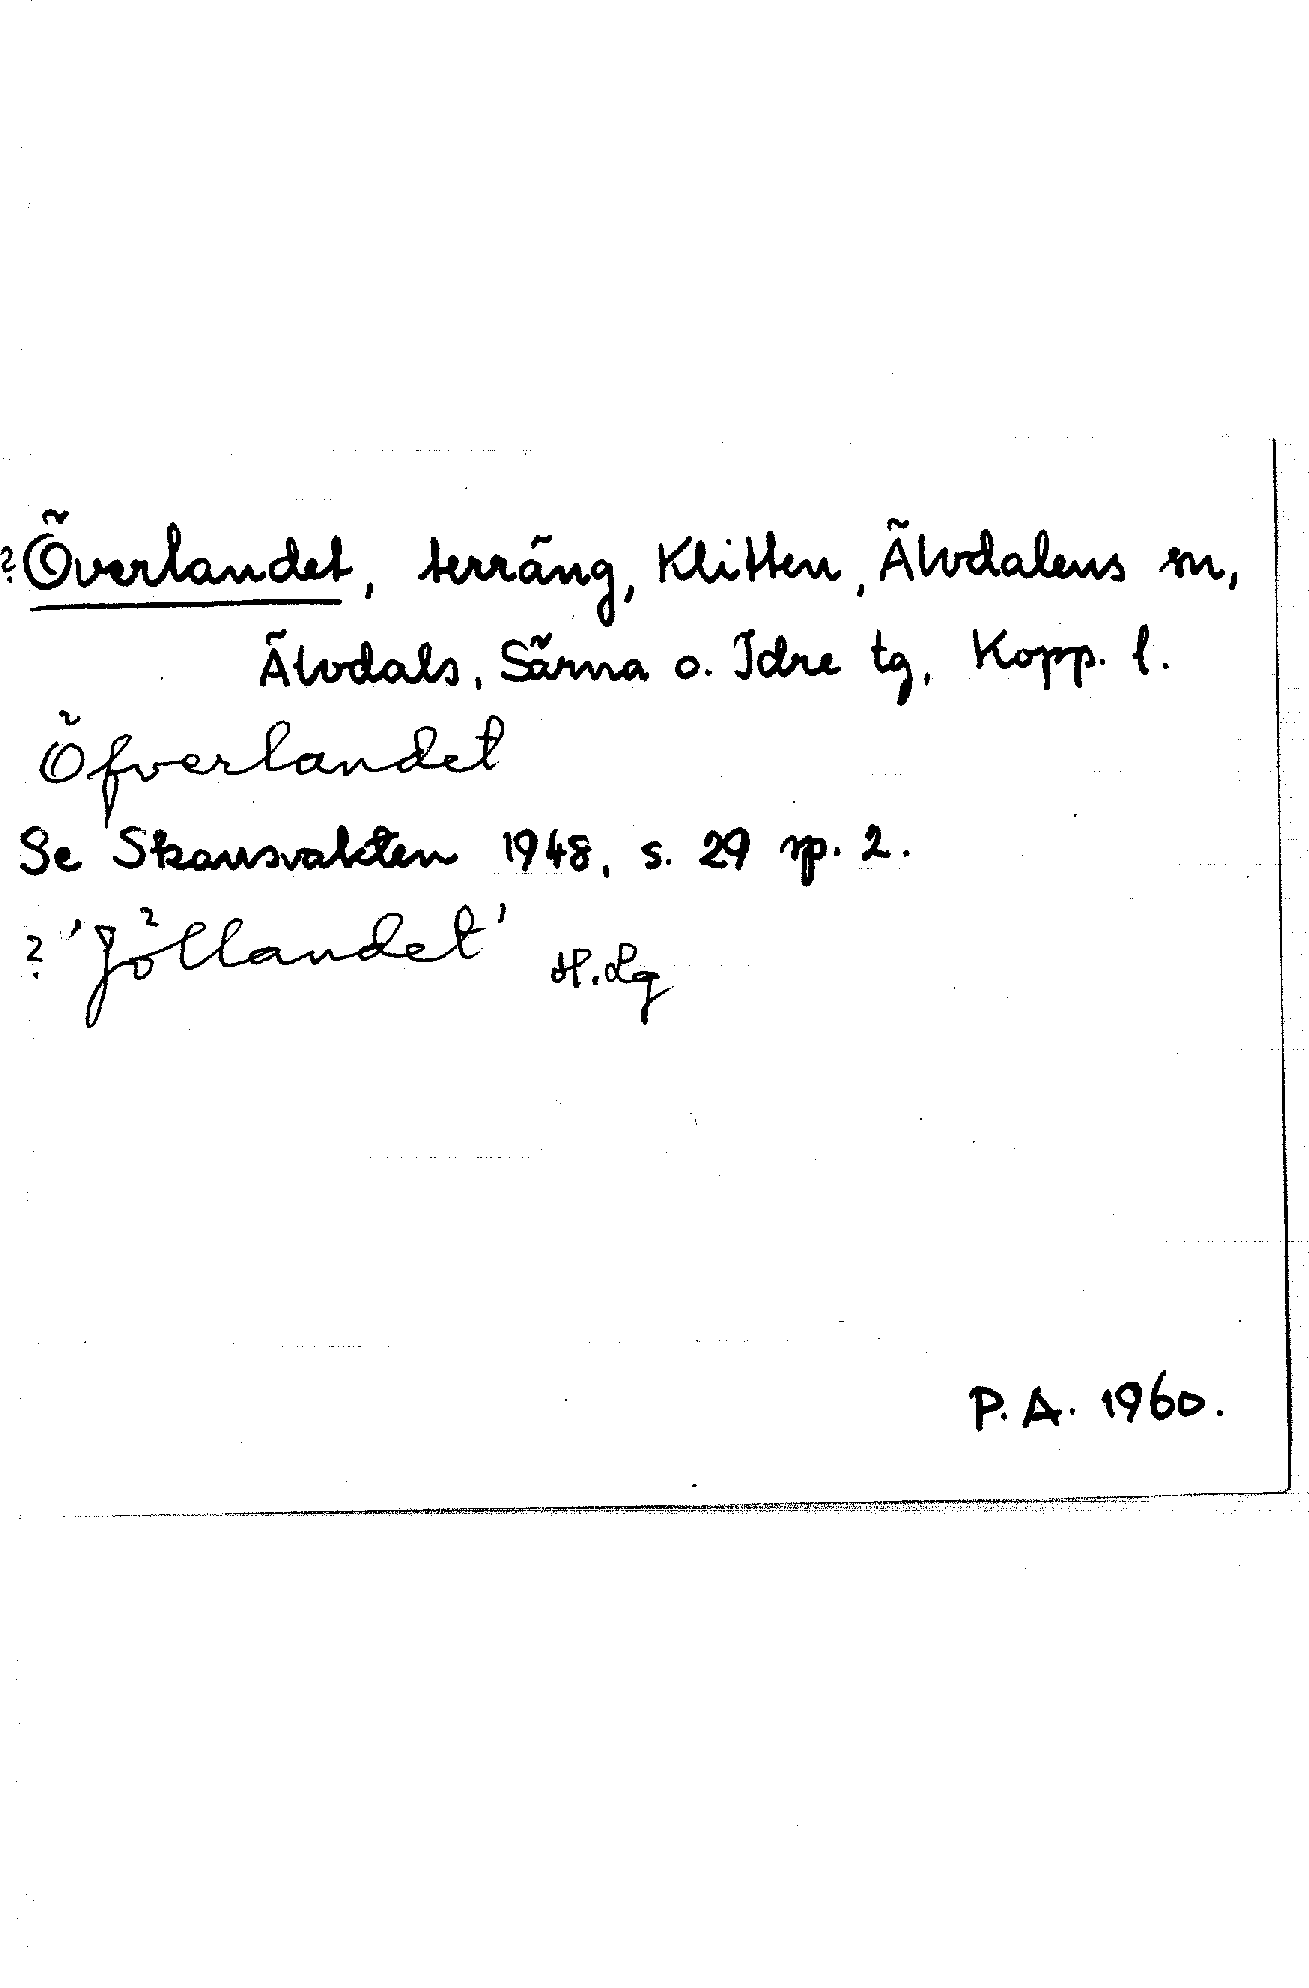 ? Överlandet, terräng, Klitten, Älvdalens sn,
Älvdals, Särna o. Idre tg, Kopp. l.
Öfverlandet
Se Skansvakten 1948, s. 29 sp. 2.
? 'Jöllandet' H. Lg
P. A. 1960.